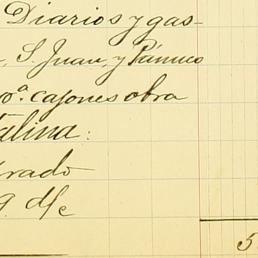 Diarios y gas-
S. Juan, y Pánuco
cajones obra
talina:
rado
9. d/c
5